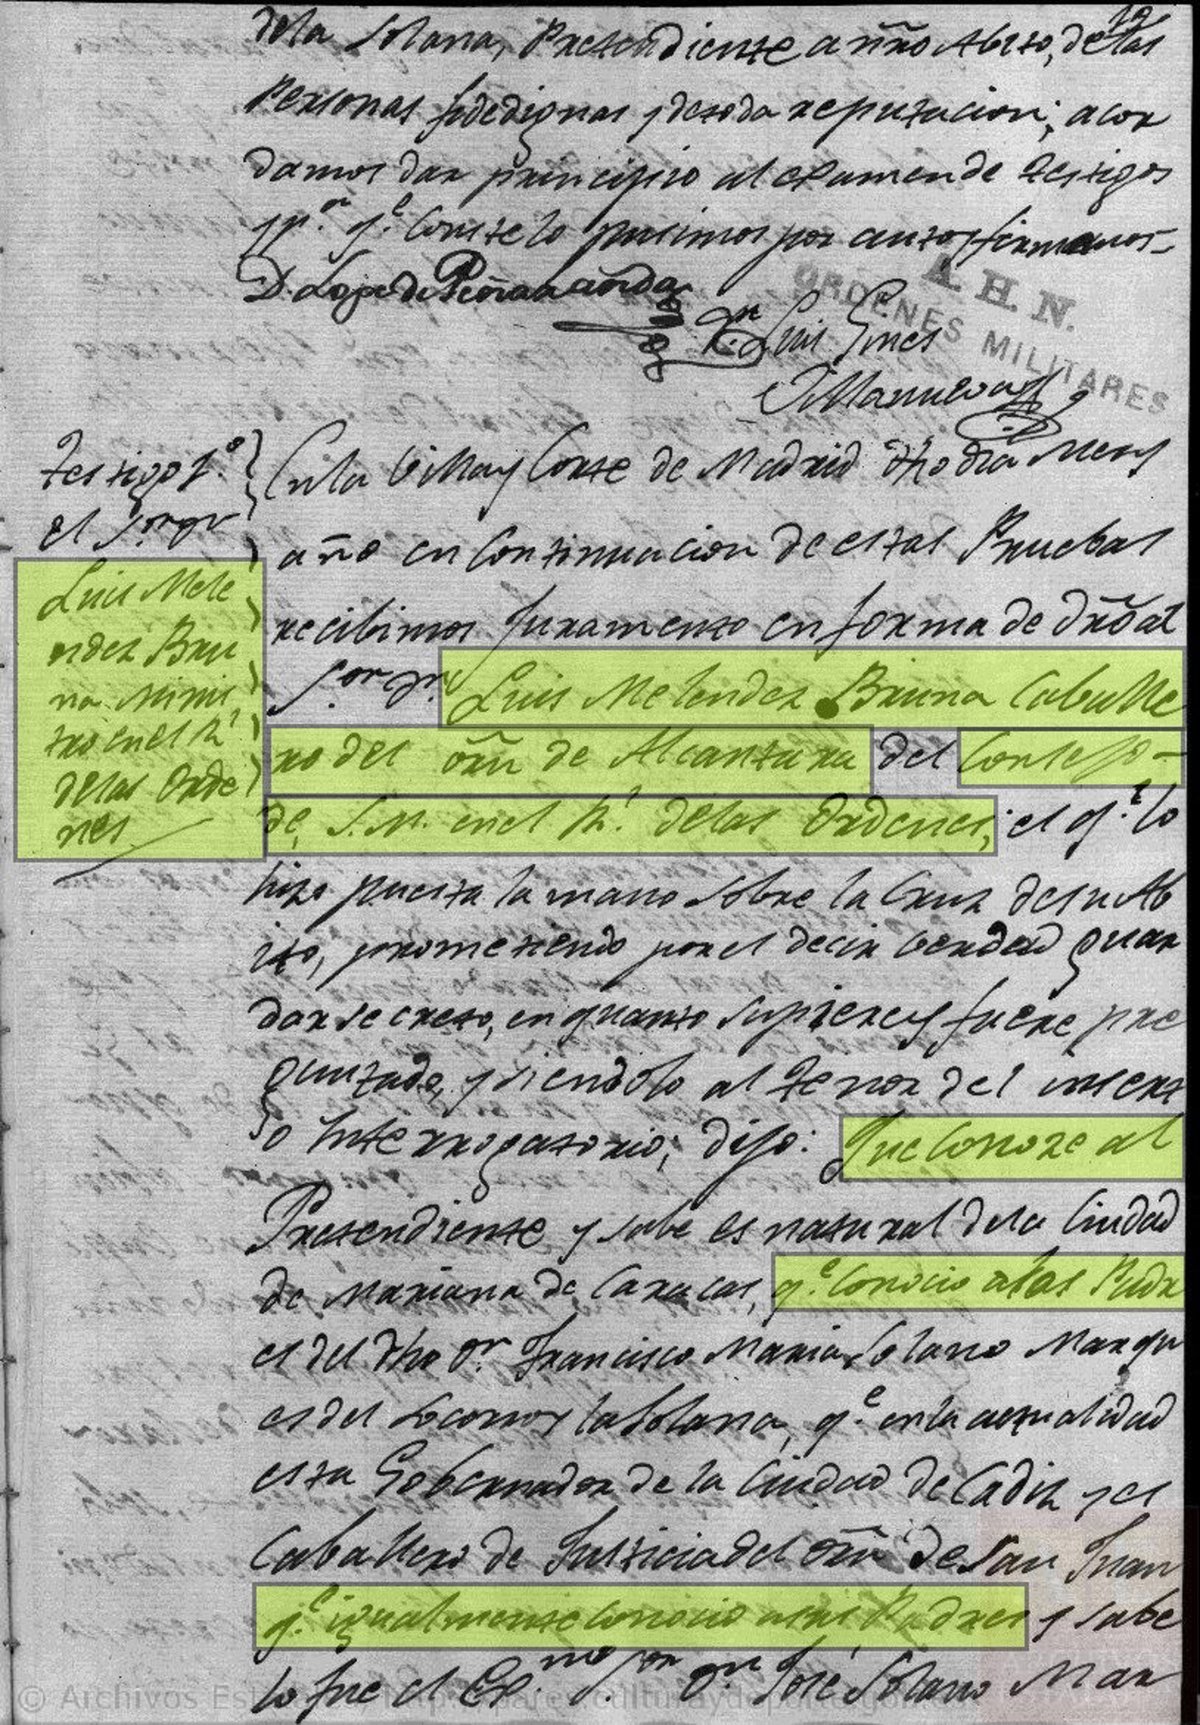 12
dela Solana, Pretendiente a ñro Abito, de las
Personas fidedignas y de toda reputacion; acor
damos dar principio al examen de testigos
y p.ª q.ᵉ conste lo pusimos por auto y firmamos
D. Lope de Peñaranda
D.ⁿ Luis Gines
Villanueva
A. H. N.
ORDENES MILITARES
Testigo p.º
el S.ᵒʳ Dⁿ
Luis Mele
ndez Bru
na Minis
tro en el R.ˡ
delas Orde
nes
En la Villa y Corte de Madrid dho dia Mes y
año en Continuacion de estas Pruebas
recibimos Juramento en forma de dro al
S.ᵒʳ Dⁿ Luis Melendez Bruna Caballe
ro del orn de Alcantara del Consejo
de S.M. en el R.ˡ delas Ordenes; el q.ᵉ lo
hizo puesta la mano sobre la Cruz de su Ab
ito, prometiendo por el decir verdad guar
dar secreto, en quanto supiere y fuere pre
guntado, y siendolo al tenor del insert
o Interrogatorio; dijo: Que Conoze al
Pretendiente y sabe es natural dela Ciudad
de Mariana de Caracas, q.ᵉ Conocio a los Padr
es del dho Dⁿ Francisco Maria Solano Marqu
es del Socorro y la Solana, q.ᵉ en la actualidad
esta Gobernador de la Ciudad de Cadiz y es
Caballero de Justicia del orn de San Juan
q.ᵉ igualmente conocio a sus Padres y sabe
lo fue el Ex.ᵐᵒ S.ᵒʳ Dⁿ José Solano Mar
© Archivos Es